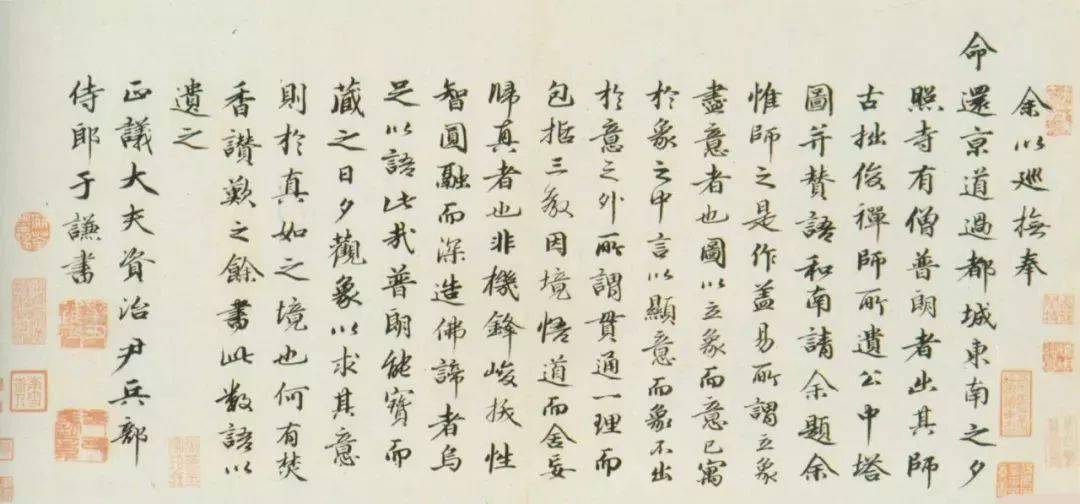 余以巡撫奉
命還京道過都城東南之夕
照寺有僧普朗者出其師
古拙俊禪師所遺公中塔
圖并賛語和南請余題余
惟師之是作盖易所謂立象
盡意者也圖以立象而意已寓
於象之中言以顯意而象不出
於意之外所謂貫通一理而
包括三教因境悟道而舍妄
歸真者也非機鋒峻拔性
智圓融而深造佛諦者烏
足以語此哉普朗能寳而
蔵之日夕觀象以求其意
則於真如之境也何有焚
香讃歎之餘書此數語以
遺之
正議大夫資治尹兵部
侍郎于謙書